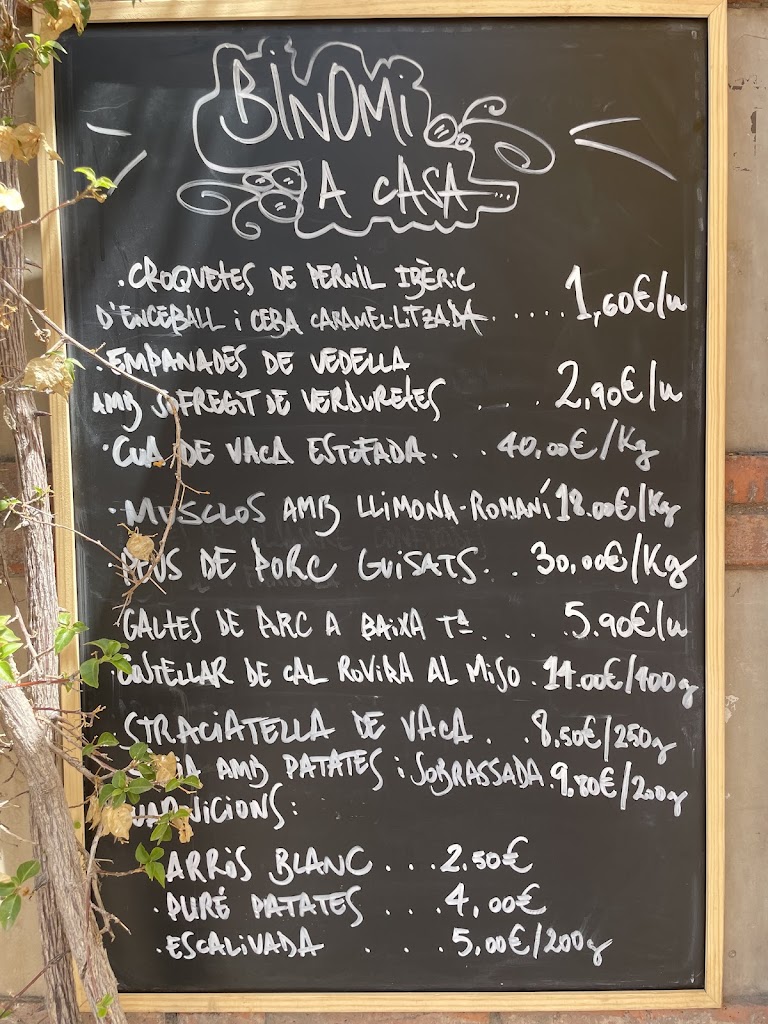 BINOMI
A CASA
·CROQUETES DE PERNIL IBÈRIC
D'ENCEBALL I CEBA CARAMEL·LITZADA..... 1,60€/u
·EMPANADES DE VEDELLA
AMB SOFREGIT DE VERDURETES .... 2,90€/u
·CUA DE VACA ESTOFADA.... 40,00€/Kg
·MUSCLOS AMB LLIMONA-ROMANÍ 18.00€/Kg
·PEUS DE PORC GUISATS... 30,00€/Kg
GALTES DE PORC A BAIXA Tª.... 5.90€/u
COSTELLAR DE CAL ROVIRA AL MISO . 14.00€/400g
STRACIATELLA DE VACA . . 8,50€/250g
AMB PATATES I SOBRASSADA. 9.80€/200g
GUARNICIONS:
ARRÒS BLANC ... 2.50€
·PURÉ PATATES ... 4,00€
·ESCALIVADA .... 5,00€/200g